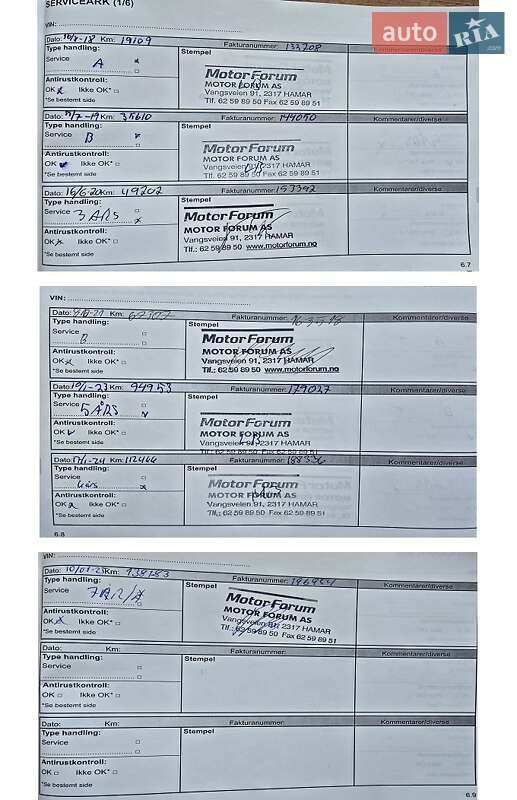 SERVICEARK (1/6)
auto RIA .com
VIN:
Dato: Km: 19109 Fakturanummer: 133208 Kommentarer/diverse
Type handling: Stempel
Service A
Antirustkontroll:
OK Ikke OK*
*Se bestemt side
MotorForum
MOTOR FORUM AS
Vangsveien 91, 2317 HAMAR
Tlf. 62 59 89 50 Fax 62 59 89 51
Dato: Km: 35610 Fakturanummer: 144050 Kommentarer/diverse
Type handling: Stempel
Service B
Antirustkontroll:
OK Ikke OK*
*Se bestemt side
MotorForum
MOTOR FORUM AS
Vangsveien 91, 2317 HAMAR
Tlf. 62 59 89 50 Fax 62 59 89 51
Dato: 16/6-20 Km: 49202 Fakturanummer: 153342 Kommentarer/diverse
Type handling: Stempel
Service 3 ARS
Antirustkontroll:
OK Ikke OK*
*Se bestemt side
MotorForum
MOTOR FORUM AS
Vangsveien 91, 2317 HAMAR
Tlf.: 62 59 89 50 www.motorforum.no
6.7
VIN:
Dato: Km: Fakturanummer: Kommentarer/diverse
Type handling: Stempel
Service B
Antirustkontroll:
OK Ikke OK*
*Se bestemt side
MotorForum
MOTOR FORUM AS
Vangsveien 91, 2317 HAMAR
Tlf.: 62 59 89 50 www.motorforum.no
Dato: Km: 94953 Fakturanummer: 179027 Kommentarer/diverse
Type handling: Stempel
Service 5 ÅRS
Antirustkontroll:
OK Ikke OK*
*Se bestemt side
MotorForum
MOTOR FORUM AS
Vangsveien 91, 2317 HAMAR
Tlf. 62 59 89 50 Fax 62 59 89 51
Dato: Km: 112466 Fakturanummer: 188336 Kommentarer/diverse
Type handling: Stempel
Service
Antirustkontroll:
OK Ikke OK*
*Se bestemt side
MotorForum
MOTOR FORUM AS
Vangsveien 91, 2317 HAMAR
Tlf.: 62 59 89 50 Fax 62 59 89 51
6.8
VIN:
Dato: Km: Fakturanummer: Kommentarer/diverse
Type handling: Stempel
Service
Antirustkontroll:
OK Ikke OK*
*Se bestemt side
MotorForum
MOTOR FORUM AS
Vangsveien 91, 2317 HAMAR
Tlf.: 62 59 89 50 Fax 62 59 89 51
Dato: Km: Fakturanummer: Kommentarer/diverse
Type handling: Stempel
Service
Antirustkontroll:
OK Ikke OK*
*Se bestemt side
Dato: Km: Fakturanummer: Kommentarer/diverse
Type handling: Stempel
Service
Antirustkontroll:
OK Ikke OK*
*Se bestemt side
6.9